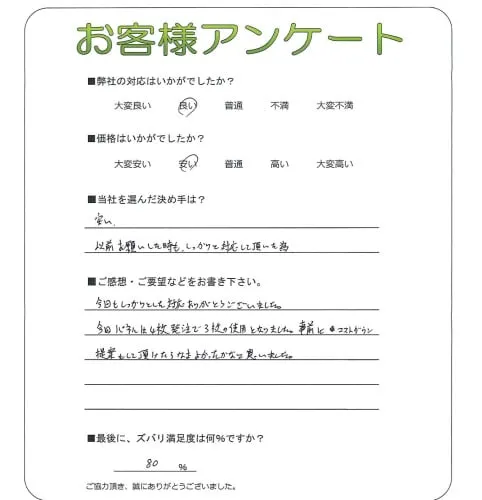 お客様アンケート
■弊社の対応はいかがでしたか？
大変良い 良い 普通 不満 大変不満
■価格はいかがでしたか？
大変安い 安い 普通 高い 大変高い
■当社を選んだ決め手は？
安い、
以前お願いした時も、しっかりと対応して頂いた為
■ご感想・ご要望などをお書き下さい。
今日もしっかりとした対応ありがとうございました。
今回パネルは4枚発注で3枚の使用となりました。事前にコストダウン
提案もして頂けたらなまよかったかなと思いました。
■最後に、ズバリ満足度は何%ですか？
80 %
ご協力頂き、誠にありがとうございました。